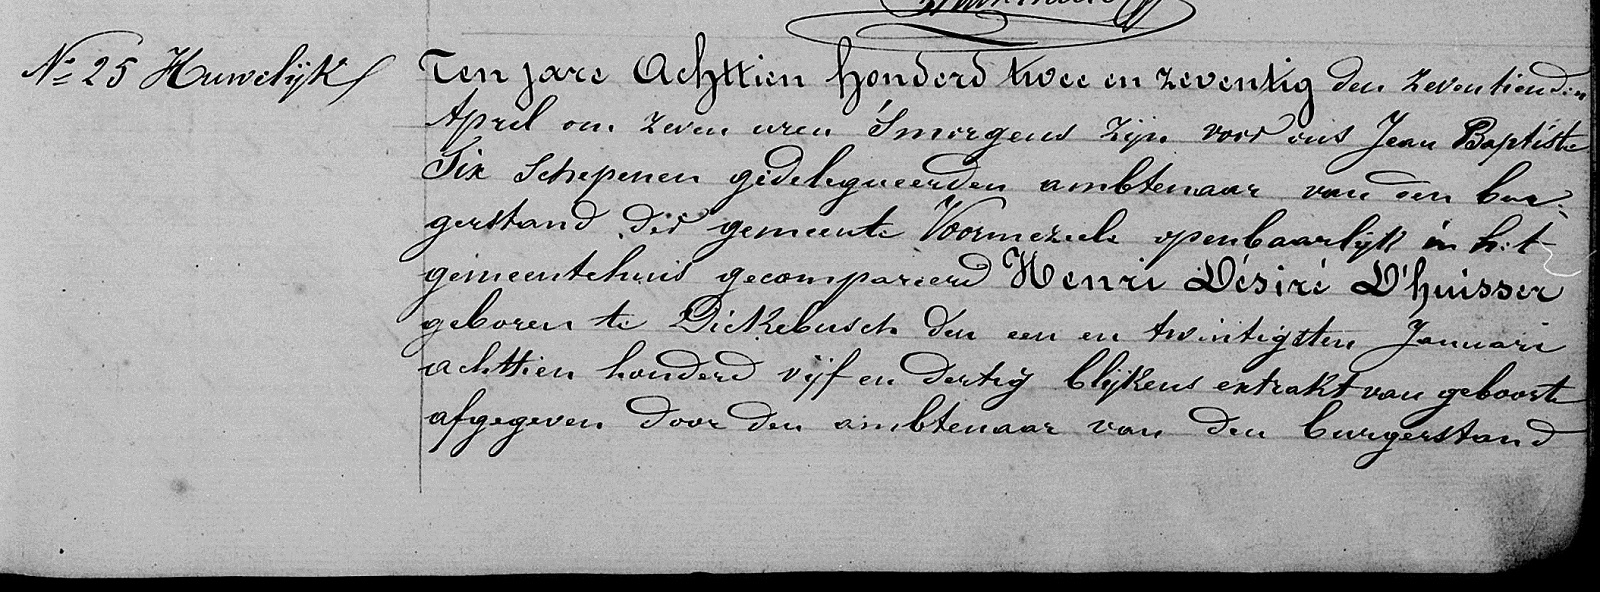 Nº 25 Huwelijk
Ten jare Achttien honderd twee en zeventig den zeventienden
April om zeven uren Smorgens zijn voor ons Jean Baptiste
Six Schepenen gedelegueerden ambtenaar van den bur-
gerstand der gemeente Voormezeele openbaarlijk in het
gemeentehuis gecompareerd Henri Désiré D'huisser
geboren te Dickebusch den een en twintigsten Januari
achttien honderd vijf en dertig blijkens extrakt van geboorte
afgegeven door den ambtenaar van den burgerstand